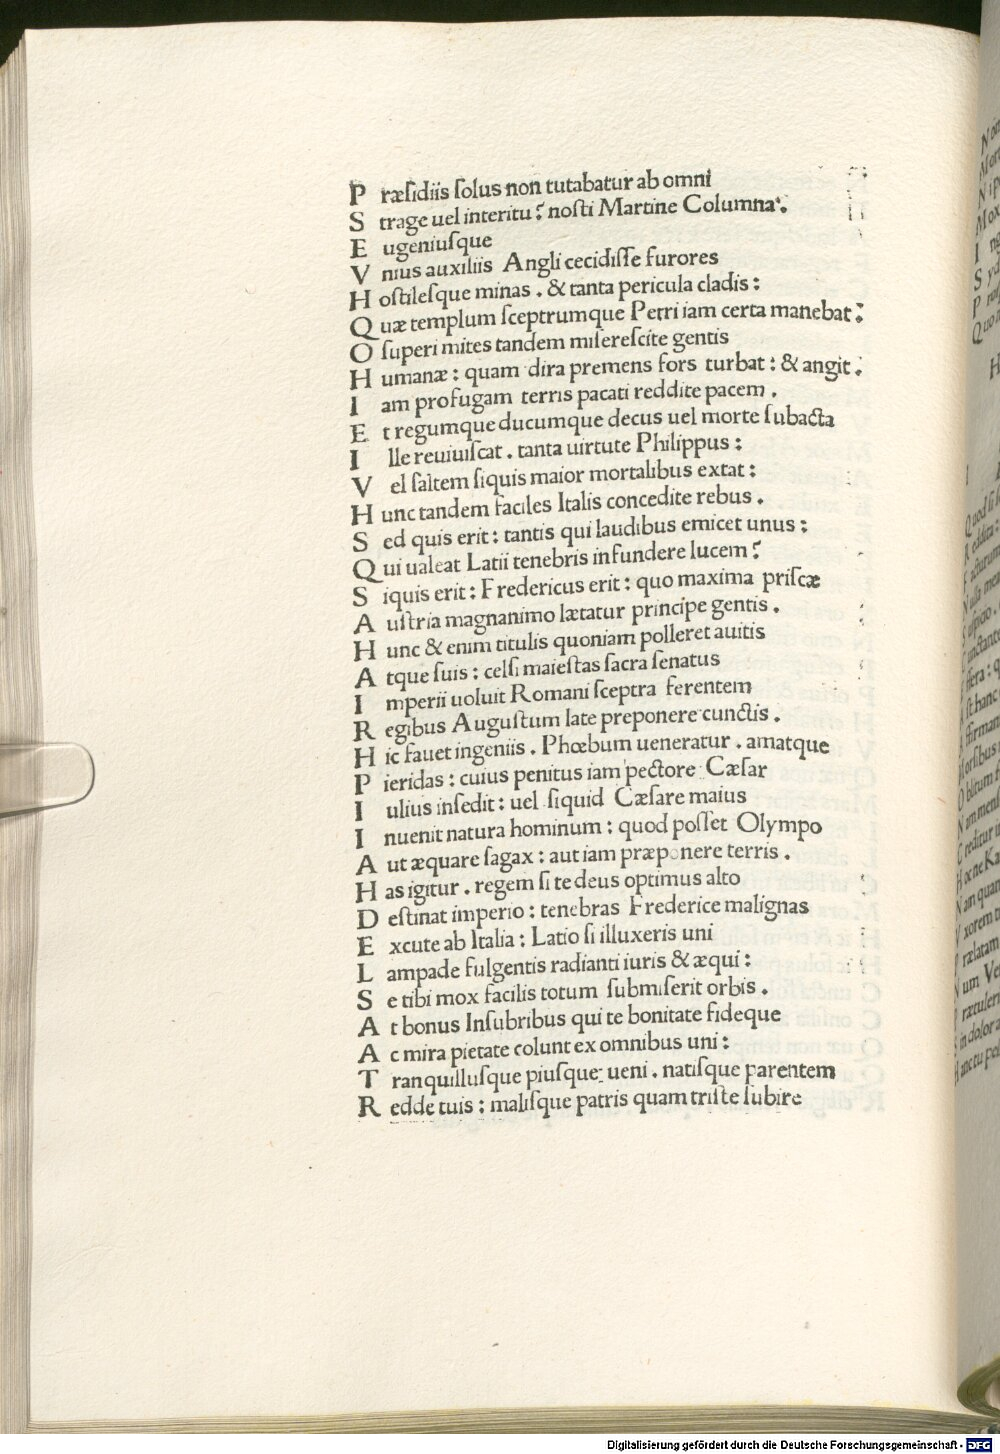 P ræſidiis ſolus non tutabatur ab omni
S trage uel interitu? noſti Martine Columna.
E ugeniuſque
V nius auxiliis Angli cecidiſſe furores
H oſtileſque minas . & tanta pericula cladis :
Q uæ templum ſceptrumque Petri iam certa manebat :
O ſuperi mites tandem miſereſcite gentis
H umanæ : quam dira premens fors turbat : & angit .
I am profugam terris pacati reddite pacem .
E t regumque ducumque decus uel morte ſubacta
I lle reuiuiſcat . tanta uirtute Philippus :
V el ſaltem ſiquis maior mortalibus extat :
H unc tandem faciles Italis concedite rebus .
S ed quis erit : tantis qui laudibus emicet unus :
Q ui ualeat Latii tenebris infundere lucem ?
S iquis erit : Fredericus erit : quo maxima priſcæ
A uſtria magnanimo lætatur principe gentis .
H unc & enim titulis quoniam polleret auitis
A tque ſuis : celſi maieſtas ſacra ſenatus
I mperii uoluit Romani ſceptra ferentem
R egibus Auguſtum late preponere cunctis .
H ic fauet ingeniis . Phœbum ueneratur . amatque
P ieridas : cuius penitus iam pectore Cæſar
I ulius inſedit : uel ſiquid Cæſare maius
I nuenit natura hominum : quod poſſet Olympo
A ut æquare ſagax : aut iam præponere terris .
H as igitur . regem ſi te deus optimus alto
D eſtinat imperio : tenebras Frederice malignas
E xcute ab Italia : Latio ſi illuxeris uni
L ampade fulgentis radianti iuris & æqui :
S e tibi mox facilis totum ſubmiſerit orbis .
A t bonus Inſubribus qui te bonitate fideque
A c mira pietate colunt ex omnibus uni :
T ranquilluſque piuſque ueni . natiſque parentem
R edde tuis : maliſque patris quam triſte ſubire
Digitalisierung gefördert durch die Deutsche Forschungsgemeinschaft - DFG